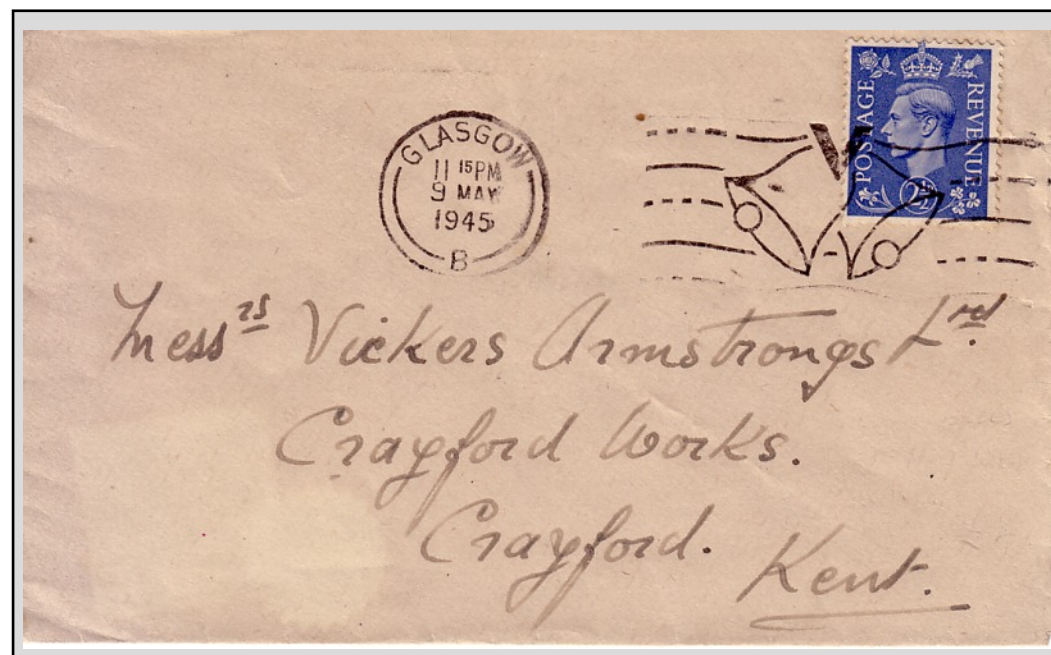 GLASGOW
11 15 PM
9 MAY
1945
B
POSTAGE
REVENUE
2½
Messrs Vickers Armstrongs Ltd.
Crayford Works.
Crayford.
Kent.